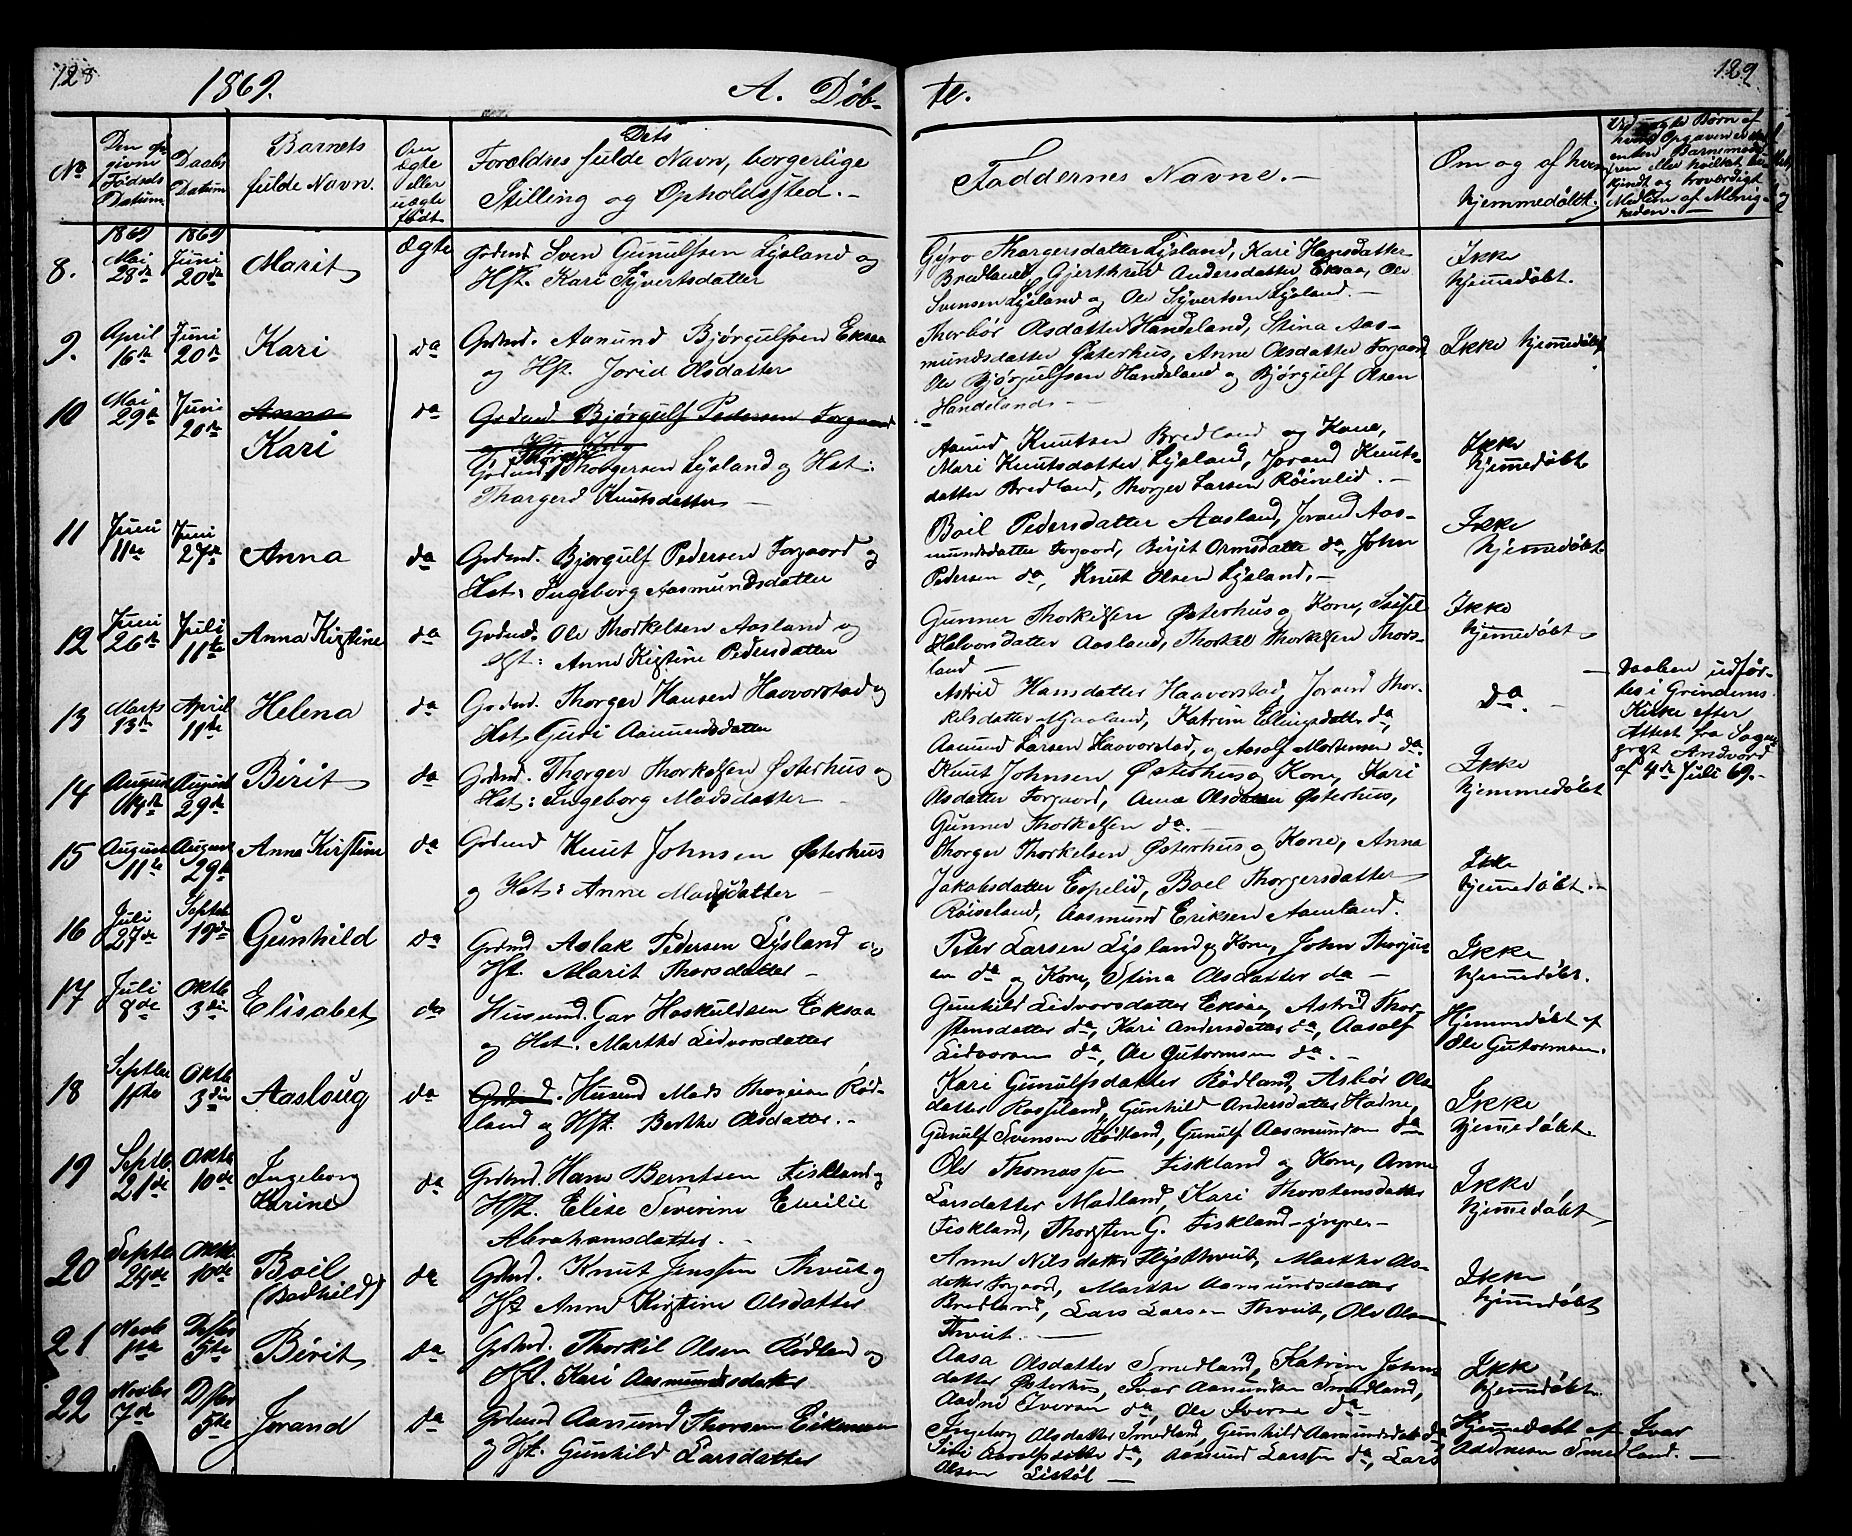 128
1869.
A. Døb-
te.
129
No
Den op
givne
Fødsels
Datum
Daabs
Datum
Barnets
fulde Navn.
Om
ægte
eller
uægte
født.
Dets
Forældres fulde Navn, borgerlige
Stilling og Opholdssted.-
Faddernes Navne.-
Om og af hvem
hjemmedøbt.
8.
1869
Mai
28de
1869
Juni
20de
Marit
Ægte
Grdmd. Sven Gunulfsen Lysland og
Hst. Kari Syvertsdatter
Gyro Thargersdatter Lysland, Kari Hansdatter
Bredland, Gjerthrud Andersdatter Eksaa, Ole
Svensen Lysland og Ole Syvertsen Lysland.-
Ikke
hjemmedøbt.
9.
April
16de
Juni
20de
Kari
da
Grdmd. Aanund Bjørgulfsen Eksaa
og Hst. Jorid Olsdatter
Thorbør Olsdatter Handeland, Stina Aas-
mundsdatter Østerhus, Anne Olsdatter Forgaard,
Ole Bjørgulfsen Handeland og Bjørgulf Olsen
Handeland.-
Ikke hjemmedøbt
10
Mai
29de
Juni
20de
Anna
Kari
da
Grdmd. Bjørgulf Pedersen Forgaard
og Hst. Ing
Grdmd. Thorger Thorgersen Lysland og Hst:
Thargerd Knutsdatter -
Aanund Knutsen Bredland og Kone,
Mari Knutsdatter Lysland, Jorand Knuts-
datter Bredland, Thorger Larsen Røiselid.-
Ikke
hjemmedøbt
11
Juni
11te
Juni
27de
Anna
da
Grdmd. Bjørgulf Pedersen Forgaard og
Hst: Ingeborg Aasmundsdatter
Boil Pedersdatter Aasland, Jorand Aas-
mundsdatter Forgaard, Birgit Ormsdatter da, John
Pedersen da, Knut Olsen Lysland.-
Ikke
hjemmedøbt
12
Juni
26de
Juli
11te
Anna Kirstine
da
Grdmd. Ole Thorkelsen Aasland og
Hst: Anne Kirstine Pedersdatter
Gunner Thorkelsen Østerhus og Kone, Sissel
Halvorsdatter Aasland, Thorkel Thorkelsen Thors-
land -
Ikke
hjemmedøbt
13
Marts
13de
April
11te
Helena
da
Grdmd. Thorger Hansen Haavorstad og
Hst. Guri Aanundsdatter
Astrid Hansdatter Haavorstad, Jorand Thor-
kelsdatter Mjaaland, Katrine Ellingsdatter da,
Aanund Larsen Haavorstad, og Aasolf Mortensen da.
da.
Daaben udfør-
tes i Grindems
Kirke efter
Attest fra Sogne
prst Andvord
af 4de Juli 69.-
14
August
14de
August
29de
Birit
da
Grdmd. Thorger Thorkelsen Østerhus og
Hst: Ingeborg Madsdatter -
Knut Johnsen Østerhus og Kone, Kari
Olsdatter Forgaard, Anne Olsdatter Østerhus,
Gunner Thorkelsen da.-
Ikke
hjemmedøbt
15
August
11te
August
29de
Anna Kirstine
da
Grdmd Knut Johnsen Østerhus
og Hst: Anne Madsdatter -
Thorger Thorkelsen Østerhus og Kone, Anna
Jakobsdatter Espelid, Boel Thorgersdatter
Røiseland, Aasmund Eriksen Aamland.
Ikke
hjemmedøbt.-
16
Juli
27de
Septbr
19de
Gunhild
da
Grdmd Aslak Pedersen Lysland og
Hst. Marit Thorsdatter -
Peter Larsen Lysland og Kone, John Thorjus-
en da og Kone, Stina Olsdatter da -
Ikke
hjemmedøbt.
17
Juli
8de
Oktb
3die
Elisabet
da
Husmd. Gar Hoskuldsen Eksaa
og Hst. Marthe Lidvorsdatter
Gunhild Lidvorsdatter Eksaa, Astrid Thor-
stensdatter da, Kari Andersdatter da, Aasolf
Lidvorsen da, Ole Gutormsen da.-
Hjemmedøbt af
Ole Gutormsen.
18
Septbr
1ste
Oktb
3die
Aasloug
da
Grdmd. Husmd Mads Thoreisen Rød-
land og Hst. Berthe Olsdatter.-
Kari Gunulfsdatter Rødland, Asbør Ols-
datter Rosseland, Gunhild Andersdatter Hadne,
Gunulf Svensen Rødland, Gunulf Aasmundsen da
Ikke
hjemmedøbt.
19
Septb.
21de
Oktb
10de
Ingeborg
Karine
da
Grdmd. Hans Berntsen Fiskland og
Hst. Elise Severine Emilie
Abrahamsdatter.-
Ole Thomassen Fiskland og Kone, Anne
Larsdatter Madland, Kari Thorstensdatter
Fiskland, Thorsten G. Fiskland yngre.-
Ikke
hjemmedøbt
20
Septb.
24de
Oktb.
10de
Boil
(Bodhild)
da
Grdmd. Knut Jenssen Thveit og
Hst Anne Kirstine Olsdatter
Anne Nilsdatter Thveit, Marthe Ols-
datter Forgaard, Marthe Aanundsdatter
Bredland, Lars Larsen Thveit, Ole Olsen
Thveit.-
Ikke
hjemmedøbt
21
Novb
1ste
Desbr
5te
Birit
da
Grdmd. Thorkil Olsen Rødland og
Hst. Kari Aasmundsdatter
Aasa Olsdatter Smedland, Katrine Johns-
datter Østerhus, Ivar Aanundsen Smedland,
Aadne Iversen da, Ole Iversen da -
Ikke
hjemmedøbt.
22
Novbr
7de
Dsbr
5te
Jorand
da
Grdmd Aanund Thorsen Eikeraasen
og Hst. Gunhild Larsdatter
Ingeborg Olsdatter Smedland, Gunhild Aanundsdatter da,
Siri Aasolfsdatter da, Aasmund Larssen da, Lars
Olsen Listøl -
Hjemmedøbt af Ivar
Aadnesen Smedland.-